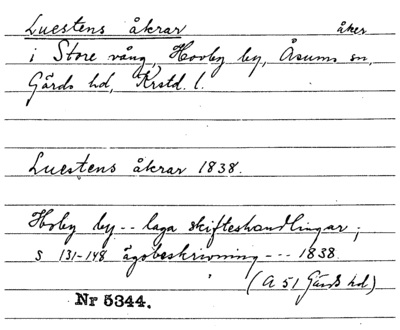 Luestens åkrar åker
i Store vång, Hovby by, Åsums sn,
Gärds hd, Krstd. l.
Luestens åkrar 1838.
Hovby by -- laga skifteshandlingar;
s 131-148 ägobeskrivning --- 1838
(A 51 Gärds hd)
Nr 5344.